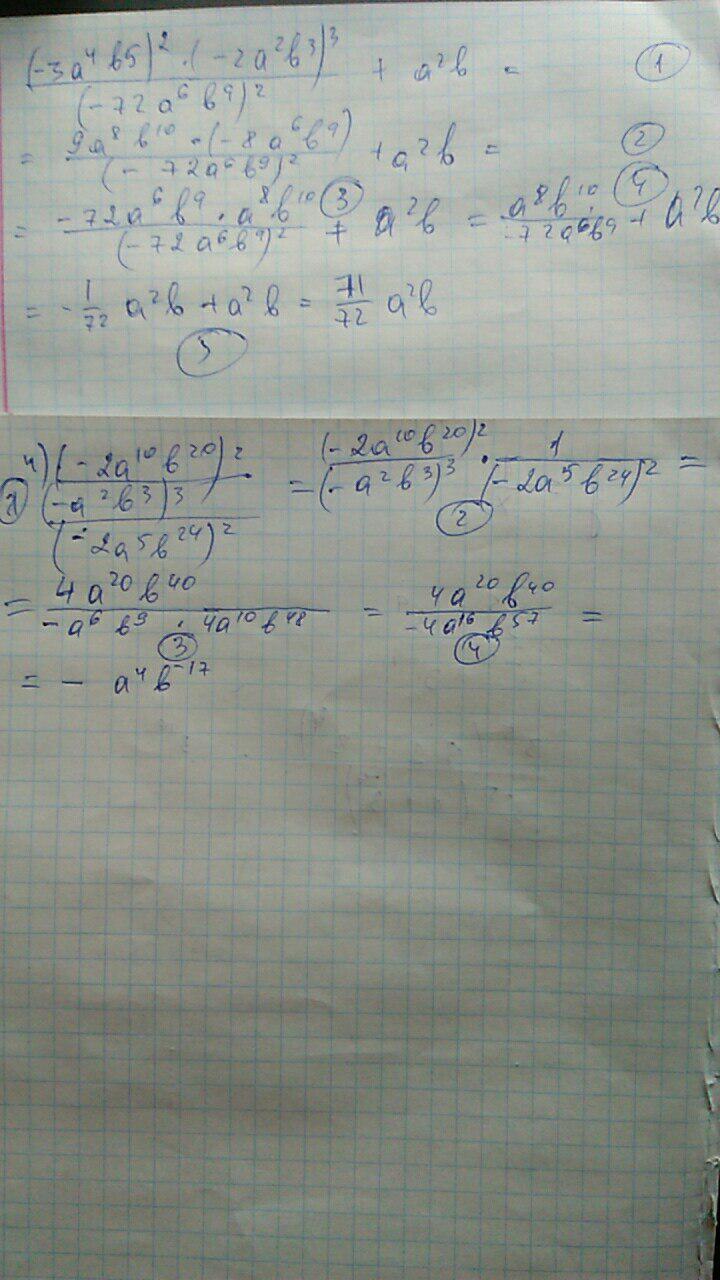 (-3a⁴b5)² · (-2a²b³)³ / (-72a⁶b⁹)² + a²b = ①
= 9a⁸b¹⁰ · (-8a⁶b⁹) / (-72a⁶b⁹)² + a²b = ②
= -72a⁶b⁹ · a⁸b¹⁰ / (-72a⁶b⁹)² ③ + a²b = a⁸b¹⁰ / -72a⁶b⁹ ④ + a²b
= -1/72 a²b + a²b = 71/72 a²b
⑤
4) (-2a¹⁰b²⁰)² / (-a²b³)³ / (-2a⁵b²⁴)² = (-2a¹⁰b²⁰)² / (-a²b³)³ · 1 / (-2a⁵b²⁴)² =
②
= 4a²⁰b⁴⁰ / -a⁶b⁹ · 4a¹⁰b⁴⁸ = 4a²⁰b⁴⁰ / -4a¹⁶b⁵⁷ =
③ ④
= - a⁴b⁻¹⁷